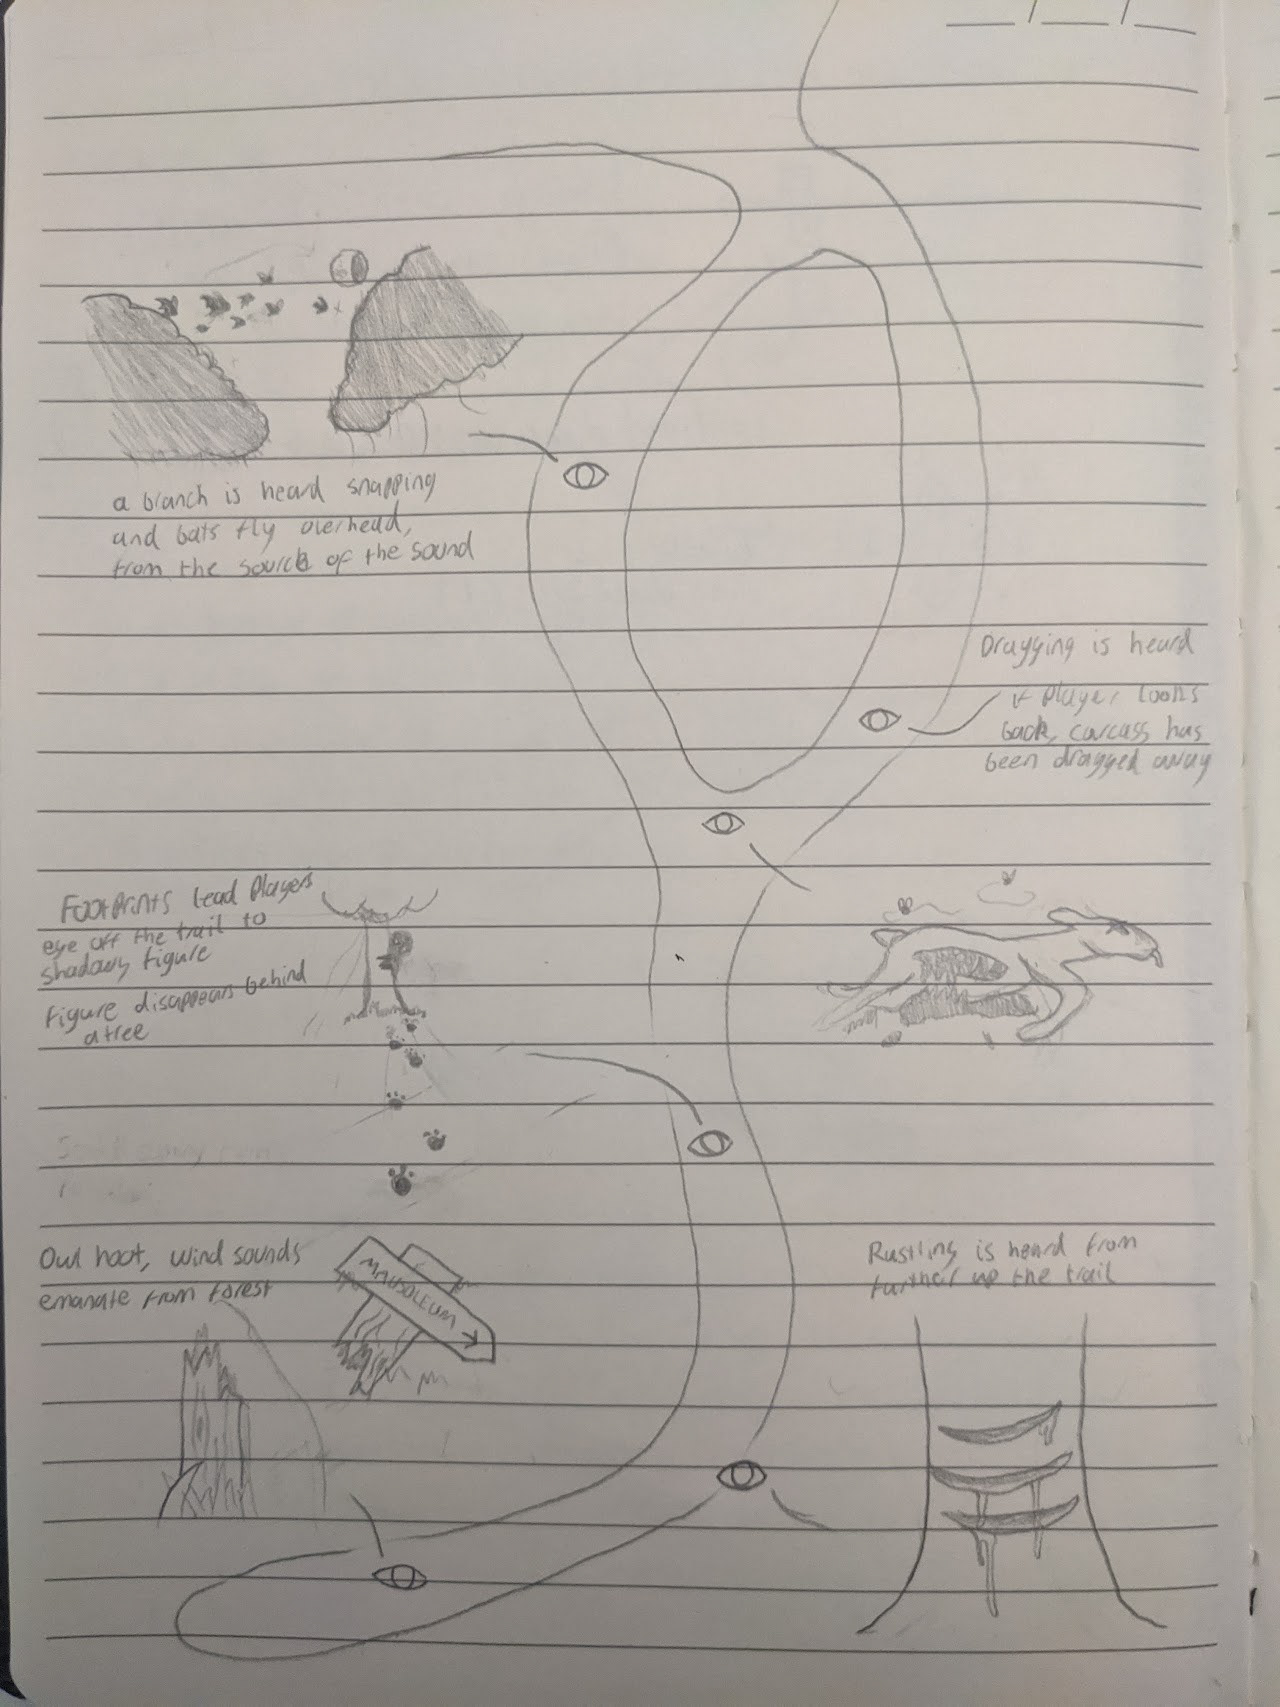 a branch is heard snapping
and bats fly overhead,
from the source of the sound
Dragging is heard
if player looks
back, carcass has
been dragged away
Footprints lead players
eye off the trail to
shadowy figure
figure disappears behind
a tree
Owl hoot, wind sounds
emanate from forest
MAUSOLEUM
Rustling is heard from
further up the trail